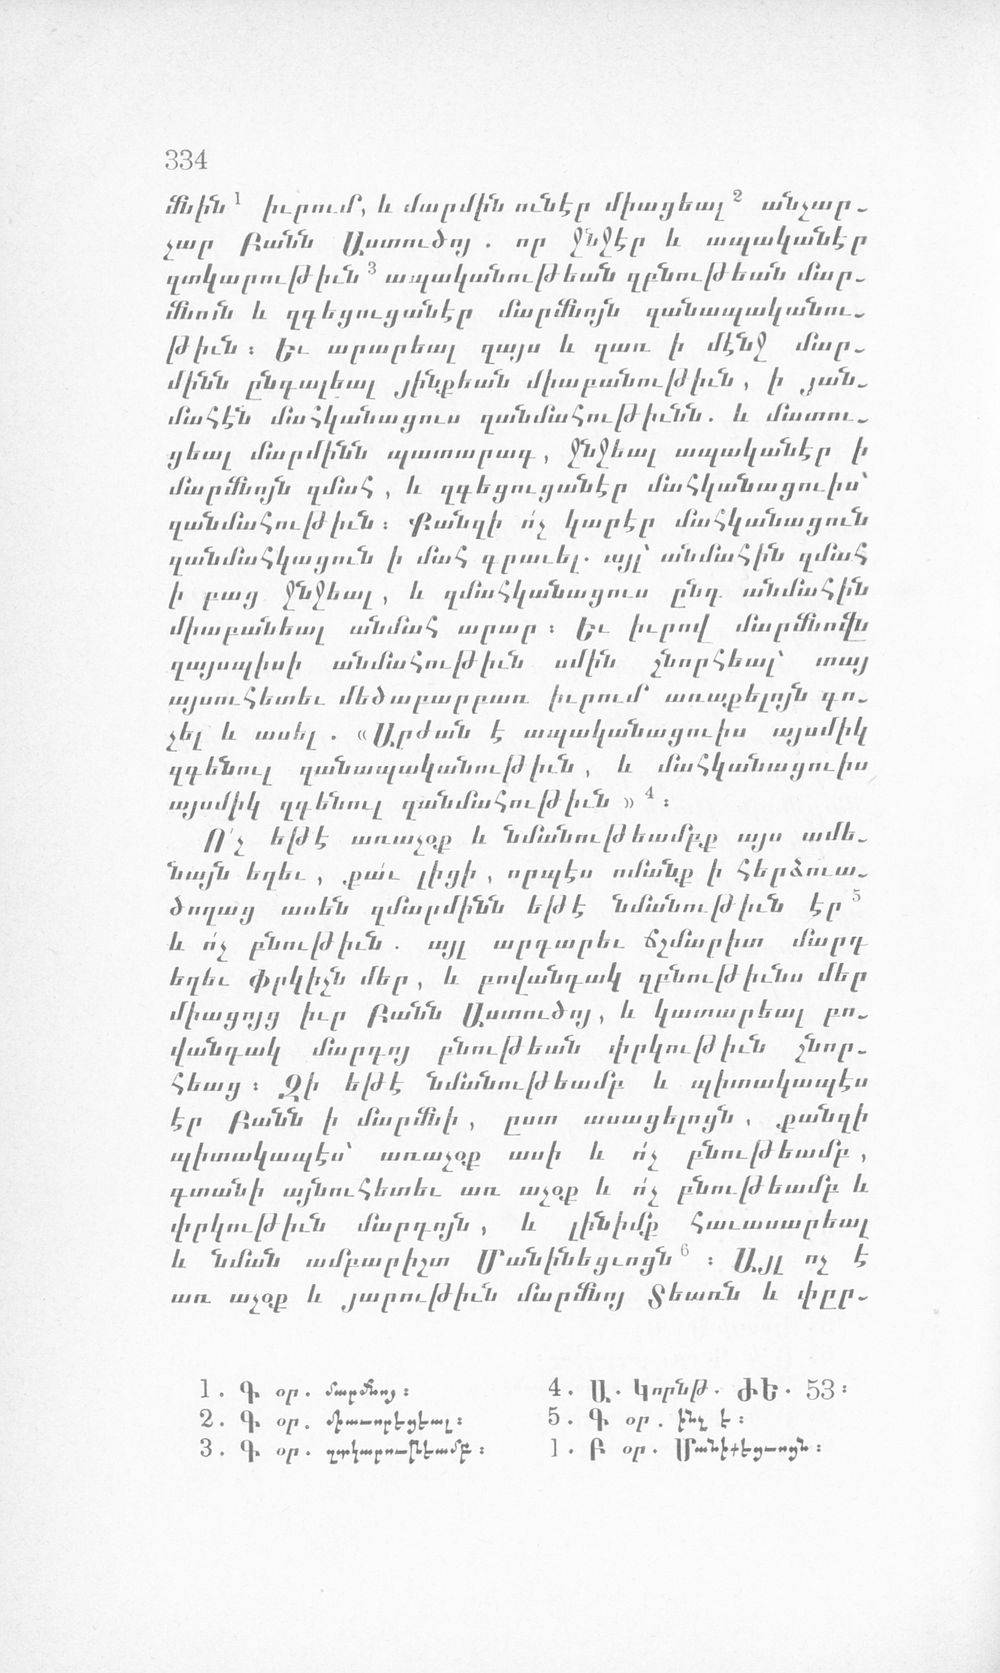 334
մնին 1 իւրում, և մարմին ունէր միացեալ 2 անչար-
չար Բանն Աստուծոյ. որ ջնջէր և ապականէր
զտկարութիւն 3 ապականութեան զբնութեան մար-
մնոն և զգեցուցանէր մարմնոյն զանապականու-
թիւն։ Եւ արարեալ զայս և զառ ի մէնջ մար-
մինն ընդալեալ յինքեան միաբանութիւն, ի յան-
մահէն մահկանացուս զանմահութիւնն. և մատու-
ցեալ մարմինն պատարագ, ջնջեալ ապականէր ի
մարմնոյն զմահ, և զգեցուցանէր մահկանացուիս՝
զանմահութիւն։ Քանզի ո՛չ կարէր մահկանացուն
զանմահկացուն ի մահ գրաւել. այլ՝ անմահին զմահ
ի բաց ջնջեալ, և զմահկանացուս ընդ անմահին
միաբանեալ անմահ արար։ Եւ իւրով մարմնովն
զայսպիսի անմահութիւն ամին շնորհեալ՝ տայ
այսուհետեւ մեծաբարբառ իւրում առաքելոյն գո-
չել և ասել. «Արժան է ապականացուիս այսմիկ
զգենուլ զանապականութիւն, և մահկանացուիս
այսմիկ զգենուլ զանմահութիւն» 4։
Ո՛չ եթէ առաչօք և նմանութեամբք այս ամե-
նայն եղեւ, քա՛ւ լիցի, որպէս ոմանք ի հերձուա-
ծողաց ասեն զմարմինն եթէ նմանութիւն էր 5
և ո՛չ բնութիւն. այլ արդարեւ ճշմարիտ մարդ
եղեւ Փրկիչն մեր, և բովանդակ զբնութիւնս մեր
միացոյց իւր Բանն Աստուծոյ, և կատարեալ բո-
վանդակ մարդոյ բնութեան փրկութիւն շնոր-
հեաց։ Զի եթէ նմանութեամբ և պիտակապէս
էր Բանն ի մարմնի, ըստ ասացելոցն, քանզի
պիտակապէս՝ առաչօք ասի և ո՛չ բնութեամբ,
գտանի այնուհետեւ առ աչօք և ո՛չ բնութեամբ և
փրկութիւն մարդոյն, և լինիմք հաւասարեալ
և նման ամբարիշտ Մանինեցւոցն 6։ Այլ ոչ է
առ աչօք և յարութիւն մարմնոյ Տեառն և փըր-
1. Գ օր. մարմնոյ։
2. Գ օր. միաւորեցեալ։
3. Գ օր. զտկարութեամբ։
4. Ա. Կորնթ. ԺԵ. 53։
5. Գ օր. ինչ է։
1. Բ օր. Մանիքեցւոցն։